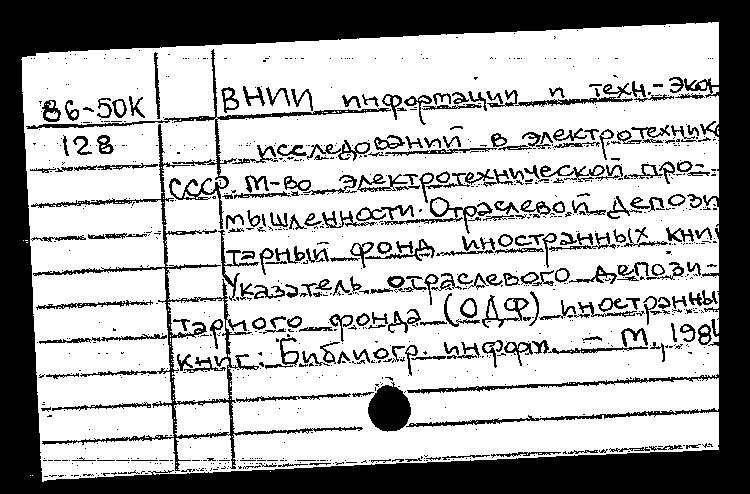 86-50К ВНИИ информации и техн.-экон
128 исследований в электротехнике
СССР. М-во электротехнической про-
мышленности. Отраслевой депози
тарный фонд иностранных книг
Указатель отраслевого депози-
тарного фонда (ОДФ) иностранны
книг: Библиогр. информ. – М., 198